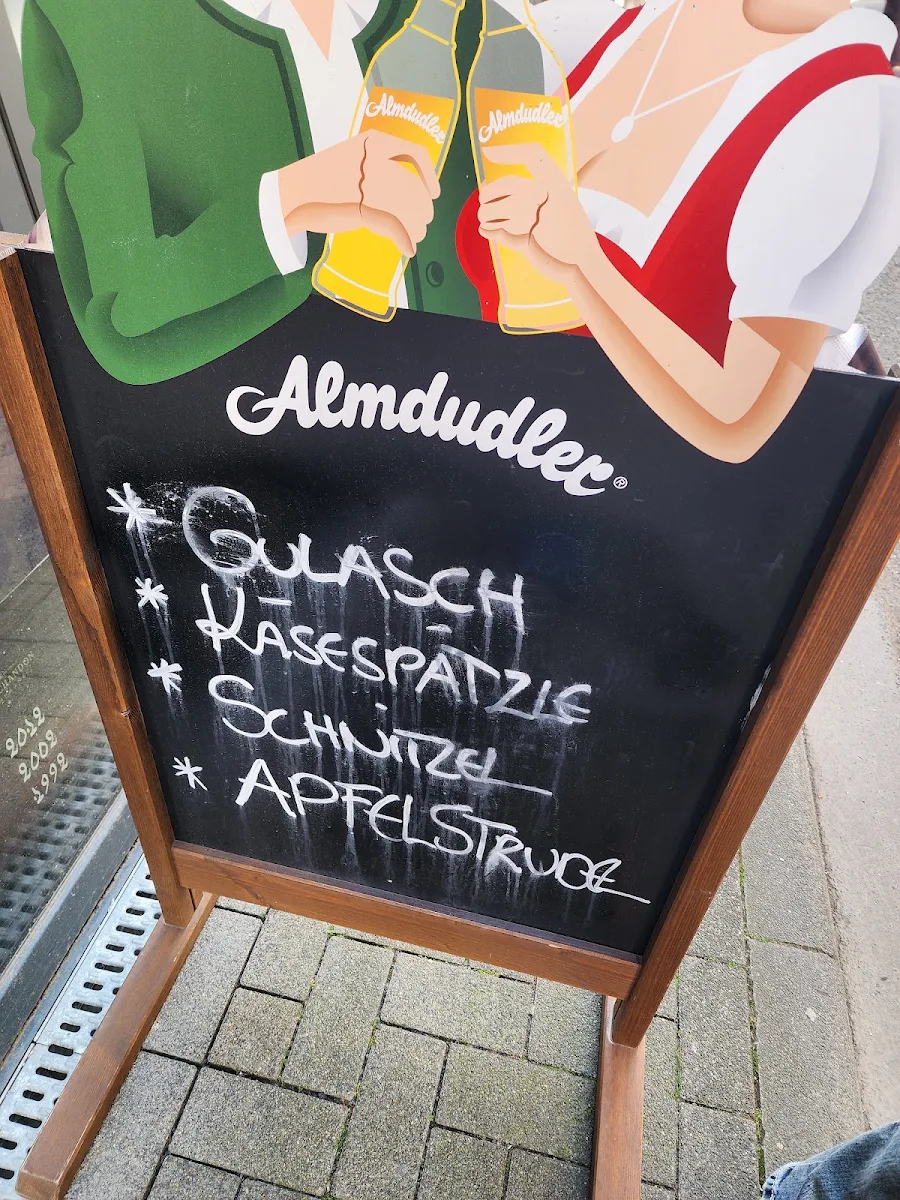 Almdudler
Almdudler
Almdudler®
* GULASCH
* KÄSESPÄTZLE
* SCHNITZEL
* APFELSTRUDEL
2022
2002
1992